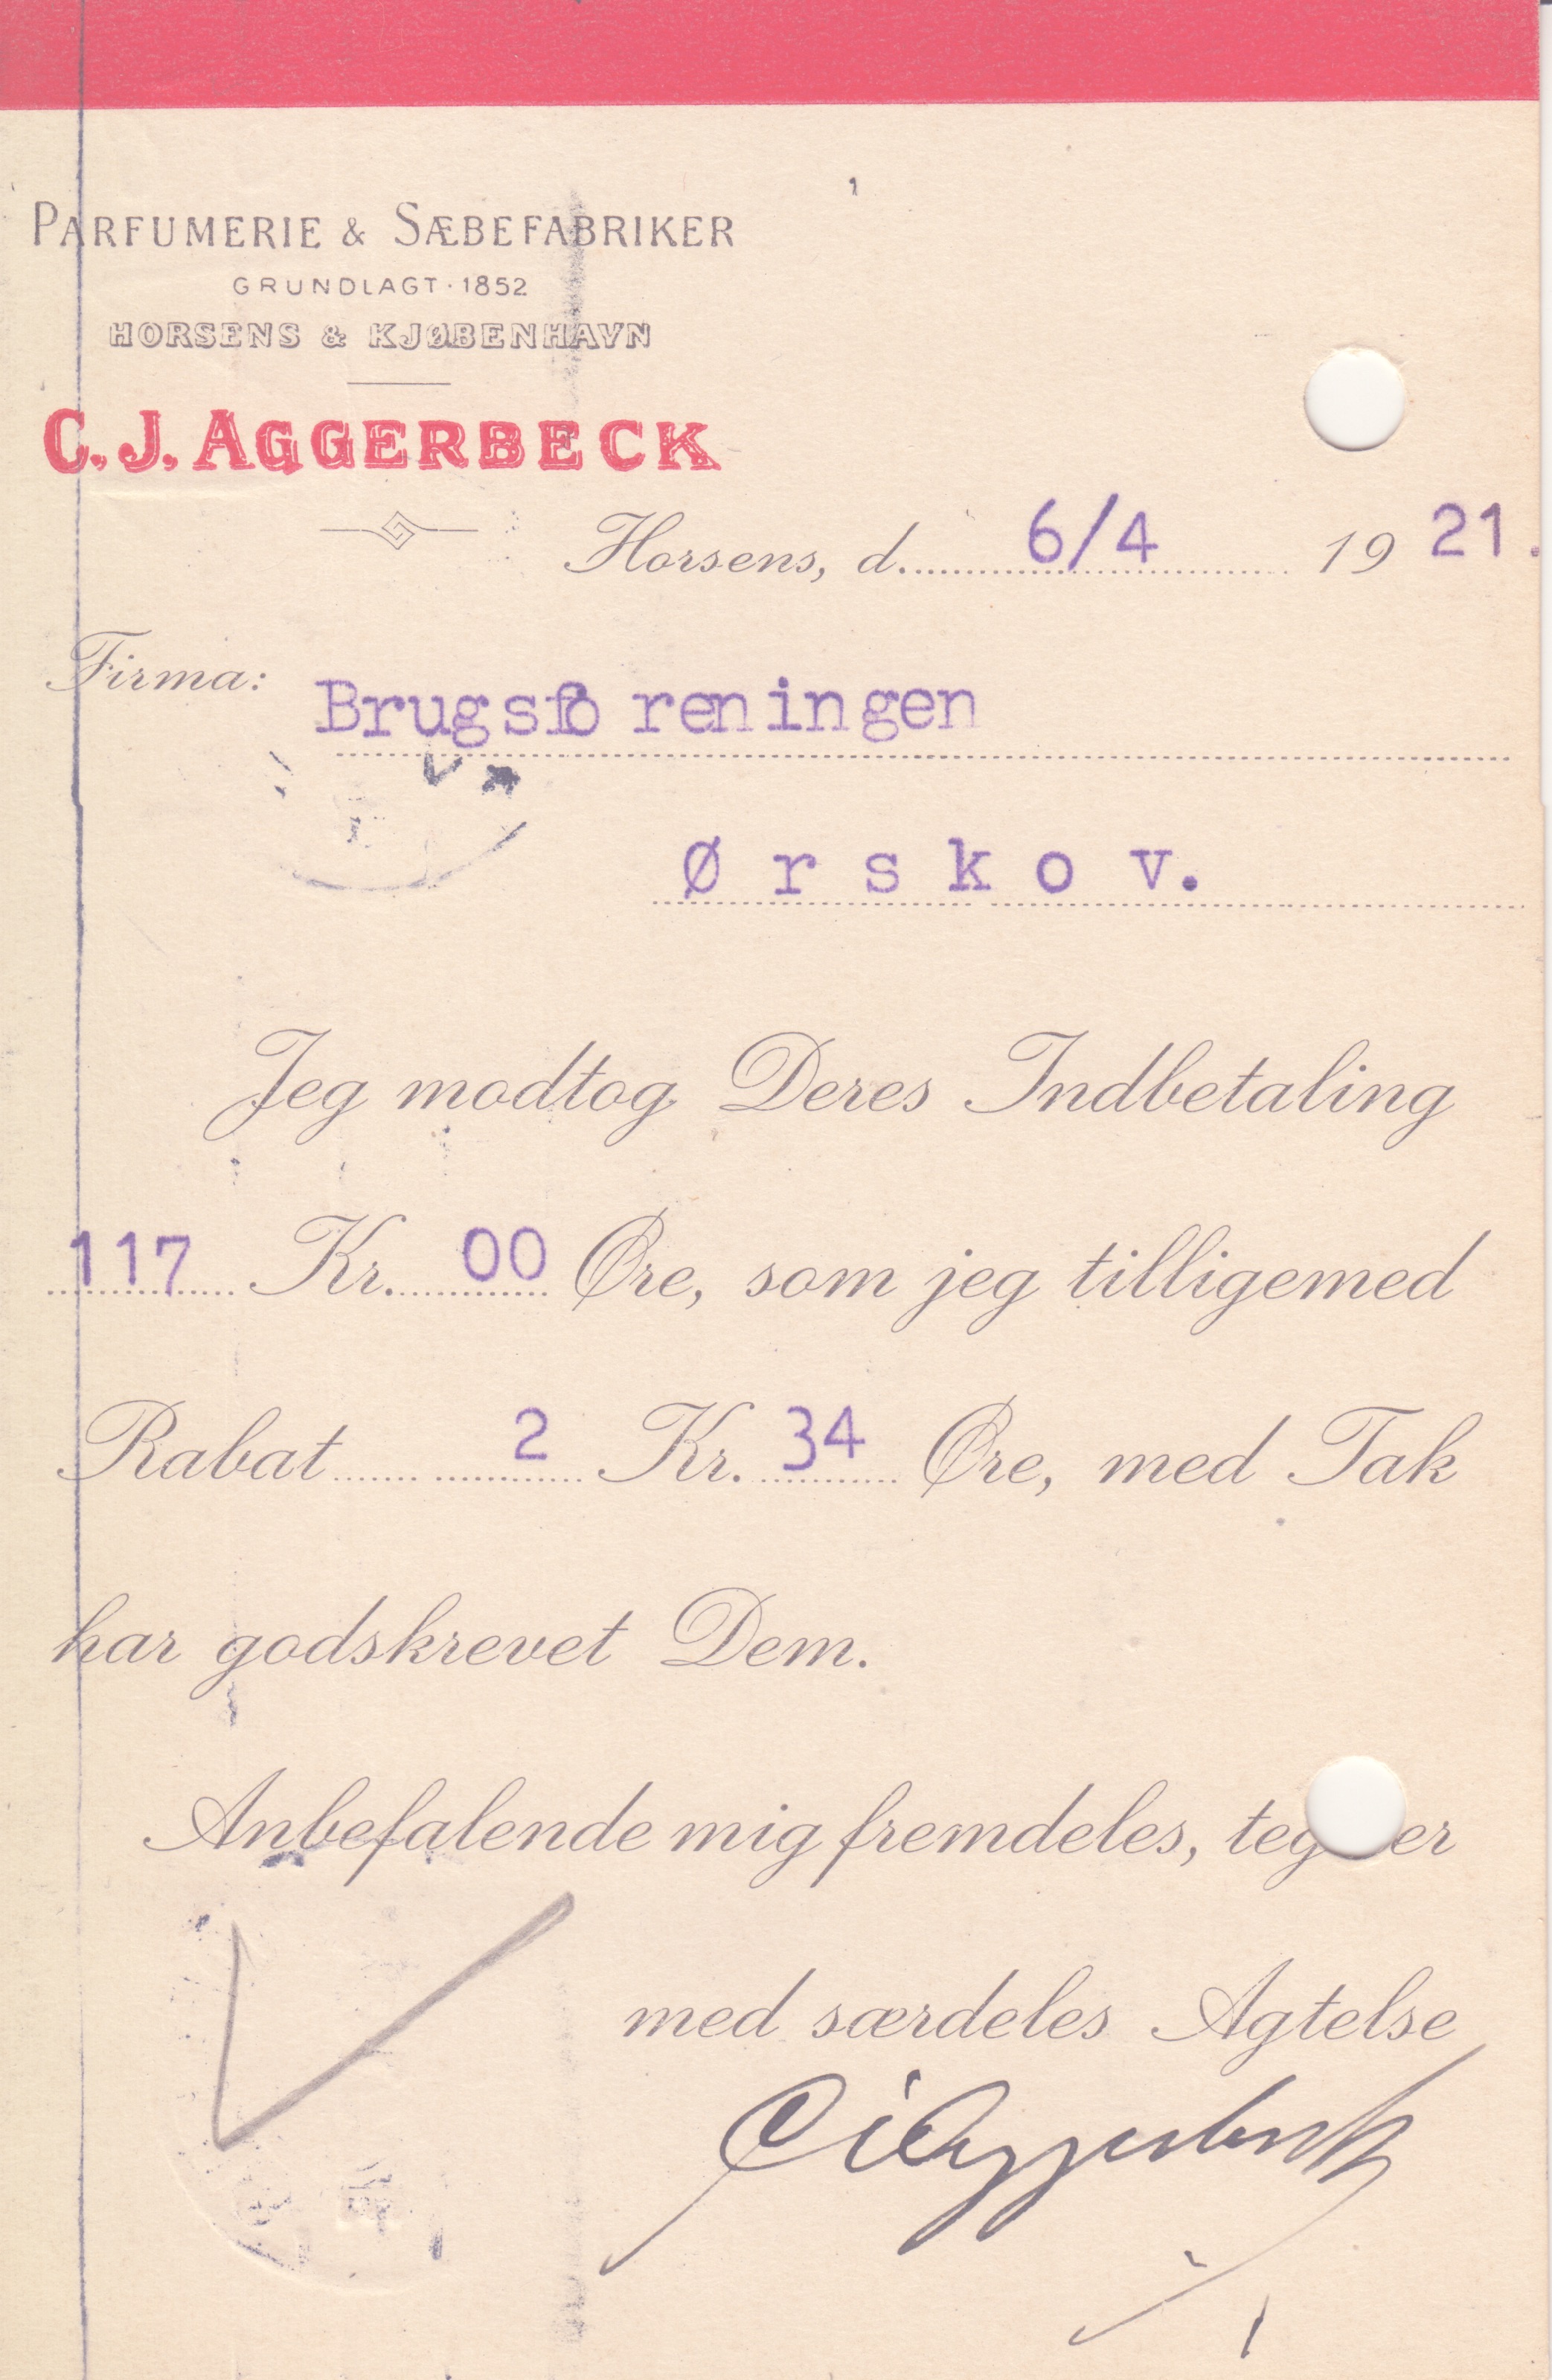 PARFUMERIE & SÆBEFABRIKER
GRUNDLAGT · 1852
HORSENS & KJØBENHAVN
C. J. AGGERBECK
Horsens, d. 6/4 1921.
Firma: Brugsforeningen
Ørskov.
Jeg modtog Deres Indbetaling
117 Kr. 00 Øre, som jeg tilligemed
Rabat 2 Kr. 34 Øre, med Tak
har godskrevet Dem.
Anbefalende mig fremdeles, tegner
med særdeles Agtelse
C J Aggerbeck